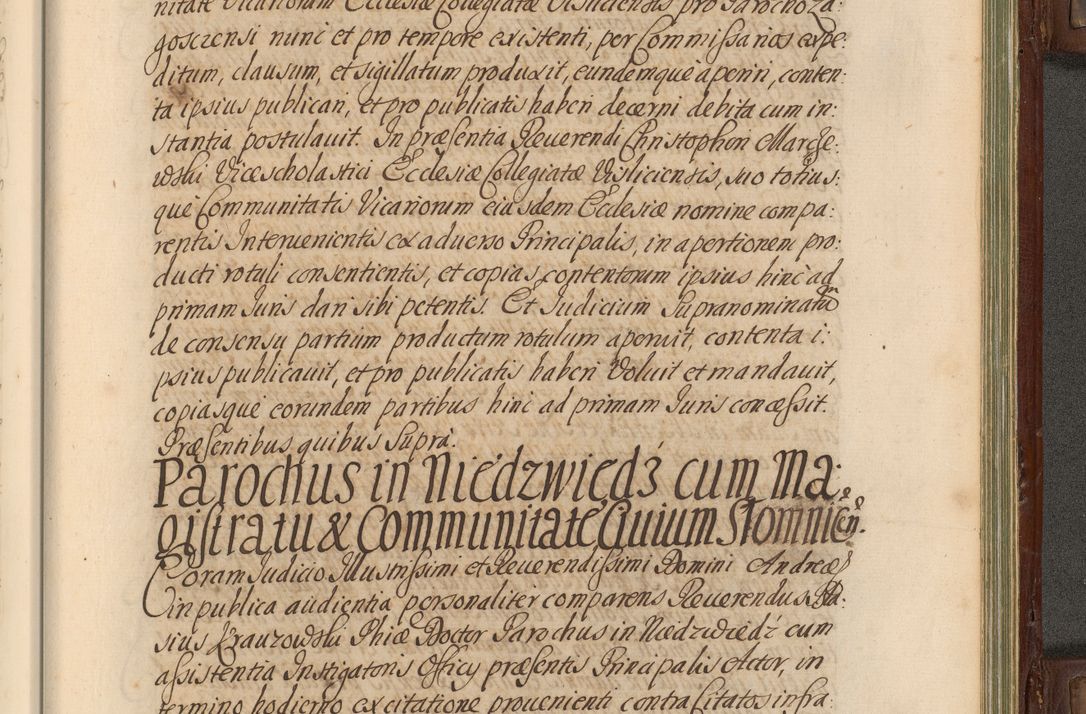 nitate Vicariorum Ecclesiæ Collegiatæ Visliciensis pro Parocho Za:
goscensi nunc et pro tempore existenti, per Commissarios expe:
ditum, clausum, et sigillatum produxit, eundemque aperiri, conten:
ta ipsius publicari, et pro publicatis haberi decerni debita cum in:
stantia postulavit. In præsentia Reverendi Christophori Marsze:
wski Vicescholastici Ecclesiæ Collegiatæ Visliciensis, suo totius:
que Communitatis Vicariorum eiusdem Ecclesiæ nomine compa:
rentis Intervenientis ex adverso Principalis, in apertionem pro:
ducti rotuli consentientis, et copias contentorum ipsius hinc ad
primam Iuris dari sibi petentis. Et Iudicium Supranominatum
de consensu partium productum rotulum aperuit, contenta i:
psius publicavit, et pro publicatis haberi voluit et mandavit,
copiasque eorundem partibus hinc ad primam Iuris concessit.
Præsentibus quibus suprà.
Parochus in Niedzwiedź cum Ma:
gistratu & Communitate Civium Słomnicen.
Coram Iudicio Illustrissimi et Reverendissimi Domini Andreæ
in publica audientia personaliter comparens Reverendus Bla:
sius Krauzowski Phiæ Doctor Parochus in Niedzwiedź cum
assistentia Instigatoris Officy præsentis Principalis Actor, in
termino hodierno ex citatione provenienti contra Citatos infra: